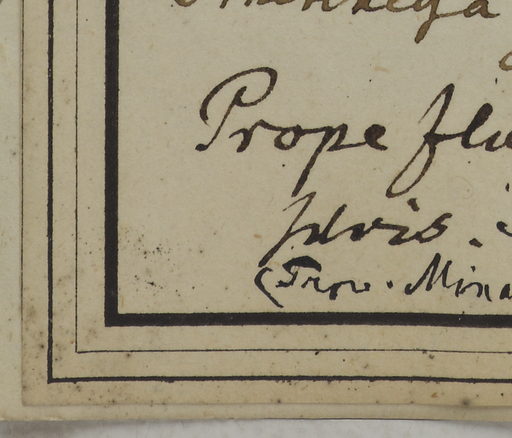 Prope flu
silvis.
(Prov. Mina